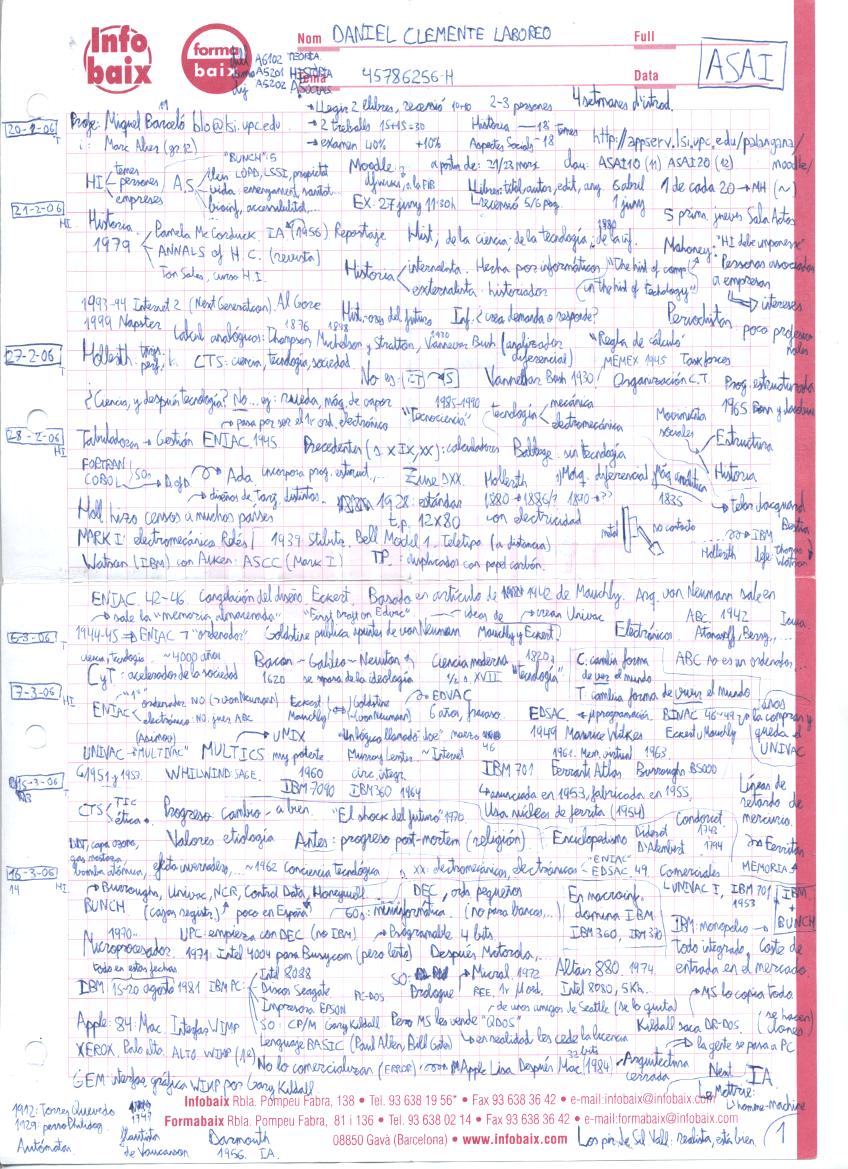 Info baix
forma baix
Nom DANIEL CLEMENTE LABOREO Full
ASAI
A6102 TEORIA
AS201 HISTÒRIA
AS202 A.SOCIALS
Tema 45786256-H Data
Llegir 2 llibres, recensió 10+10 2-3 persones 4 setmanes d'introd.
20-2-06 T Profe: Miquel Barceló blo@lsi.upc.edu → 2 treballs 15+15=30 Història — 18 temes http://appserv.lsi.upc.edu/palangana/moodle/
i: Marc Alier → examen 40% +10% Aspectes Socials - 18
"BUNCH": 5 Moodle a partir de: 21/23 març clau: ASAI10 (11) ASAI20 (12)
HI temes persones empreses A.S. LOPD, LSSI, propietat
vida: ensenyament, sanitat... Llibres: títol, autor, edit, any 6 abril 1 de cada 20 → MH (~)
accessibilitat,... EX. 27 juny 11:30h recensió 5/6 pàg. 1 juny
5 prim. jueves Sala Actos
21-2-06 HI Historia 1979 Pamela McCorduck IA (1956) Reportaje Hist, de la ciencia, de la tecnología, de la inf. 1980
ANNALS of H.C. (revista)
Ton Sales, curso H.I.
Historia internalista. Hecha por informáticos "The hist of comp. in the hist of technology"
externalista historiador
Mahoney: "HI debe imponerse"
Personas asociadas a empresas
intereses
1993-94 Internet 2 (Next Generation). Al Gore Hist. ores del futuro Inf. ¿crea demanda o responde? Periodistas poco profesionales
1999 Napster
1876 1898 1930
Calcul analógicos: Thompson, Michelson y Stratton, Vannevar Bush (analizador diferencial) "Regla de cálculo"
27-2-06 T Hollerith targ. perf. CTS: ciencia, tecnología, sociedad MEMEX 1945 Taskforces
No es Vannevar Bush 1930 / Organización C.T. Prog. estructurada
¿Ciencia, y después tecnología? No... eg: rueda, máq. de vapor 1985-1990 "Tecnociencia" tecnología mecánica electromecánica Movimientos sociales 1965
para por ser el 1r ord. electrónico Estructura
28-2-06 HI Tabuladoras → Gestión ENIAC 1945 Precedentes (s XIX, XX): calculadores Babbage sin tecnología Historia
FORTRAN COBOL 50s → DoD Ada incorpora prog. estruct,... Zuse DXX. Hollerith Máq. diferencial Máq analítica
→ diseños de Targ. distintos. 1928: estándar 1880 → 1886/7 1890 →?? 1835 → telar Jacquard
Holl. hizo censos a muchos países t.p. 12x80 con electricidad metal no contacto IBM
MARK I: electromecánica Relés / 1939 Stibitz. Bell Model 1. Teletipo (a distancia) Hollerith jefe: Thomas Watson
Watson (IBM) con Aiken: ASCC (Mark I) TP: duplicados con papel carbón.
ENIAC. 42-46. Congelación del diseño Eckert, Basada en artículo de 1942 de Mauchly. Arq. von Neumann sale en
→ sale la "memoria almacenada" "First Draft on Edvac" ideas de → crean Univac ABC 1942 Iowa
6-3-06 T 1944-45 ⇒ ENIAC 1r "ordenador" Goldstine publica apuntes de von Neumann Mauchly y Eckert Electrónicos Atanasoff, Berry,...
ciencia, tecnología ~4000 años Bacon - Galileo - Newton Ciencia moderna 1820 C. cambia forma de ver el mundo ABC no es un ordenador...
CyT: acelerador de la sociedad 1620 se separa de la ideología 1/2 s. XVIII "Tecnología" T. cambia forma de vivir el mundo
7-3-06 HI ENIAC "1r" ordenador: NO (→ von Neumann) Eckert Mauchly ⇔ Goldstine (von Neumann) → EDVAC 6 años, fracaso. EDSAC. → µprogramación BINAC 46-49 unos la compran y queda el UNIVAC
electrónico: NO, pues ABC 1949 Maurice Wilkes Eckert y Mauchly
(Asimov) → UNIX "Un lógico llamado Joe" marzo 46 1961. Mem. virtual 1963.
UNIVAC → "MULTIVAC" MULTICS muy potente Murray Leinster ~ Internet IBM 701 Ferranti Atlas Burroughs B5000
1951 y 1952. WHILWIND: SAGE. 1960 circ. integr. → anunciada en 1953, fabricada en 1955. Líneas de retardo de mercurio.
15-3-06 T IBM 7090 IBM 360 1964 Usa núcleos de ferrita (1954)
CTS TIC ética Progreso cambio → a bien. "El shock del futuro" 1970. Condorcet
Valores etiología Antes: progreso post-mortem (religión) Enciclopedismo Diderot D'Alembert Ferritas MEMORIA
DDT, capa ozono, gas mostaza
16-3-06 HI bomba atómica, efecto invernadero,... ~1962 Conciencia tecnológica s. XX: electromecánicos, electrónicos "ENIAC" EDSAC 49. Comerciales UNIVAC I, IBM 701 1953 IBM + BUNCH
14 → Burroughs, Univac, NCR, Control Data, Honeywell DEC, ords pequeños En macroinf. domina IBM IBM 360, IBM 370
BUNCH (cajas registr.) poco en España 60s: miniinformática (no para bancos,...) IBM: monopolio → BUNCH
1970 UPC: empieza con DEC (no IBM) → Programable 4 bits Todo integrado. Coste de entrada en el mercado.
Microprocesador. 1971: Intel 4004 para Busycom (pero lento) Después Motorola,...
todo en estas fechas Intel 8088 SO → Micral. 1972 Altair 880. 1974.
IBM 15-20 agosto 1981 IBM PC: Discos Seagate PC-DOS Prologue REE. 1r µord. Intel 8080, 5Kh. → MS lo copia todo.
Impresora EPSON de unos amigos de Seattle (se lo quita) (se hacen clones)
Apple: 84: Mac Interfas WIMP SO: CP/M Gary Kildall Pero MS les vende "QDOS" Kildall saca DR-DOS.
Lenguage BASIC (Paul Allen, Bill Gates) → en realidad les cede la licencia → la gente se pasa a PC
XEROX. Palo Alto. ALTO WIMP (1º) No lo comercializan (ERROR) → Apple Lisa. Después Mac (1984) 32 bits → Arquitectura cerrada Next IA
GEM interfas gráfica WIMP por Gary Kildall La Mettrie: L'homme-machine
Infobaix Rbla. Pompeu Fabra, 138 • Tel. 93 638 19 56* • Fax 93 638 36 42 • e-mail:infobaix@infobaix.com
Formabaix Rbla. Pompeu Fabra, 81 i 136 • Tel. 93 638 02 14 • Fax 93 638 36 42 • e-mail:formabaix@infobaix.com
08850 Gavà (Barcelona) • www.infobaix.com
1912: Torres Quevedo
1929: perro Philidog
Autómatas.
flautista de Vaucanson
Darmouth 1956. IA.
Los pir. de Sil. Vall. realista, está bien 1